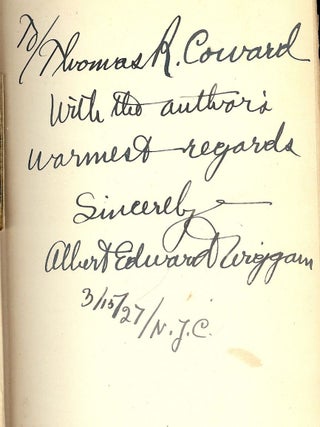 To/Thomas R. Coward
With the author's
warmest regards
Sincerely
Albert Edward Wiggam
3/15/27/N.Y.C.